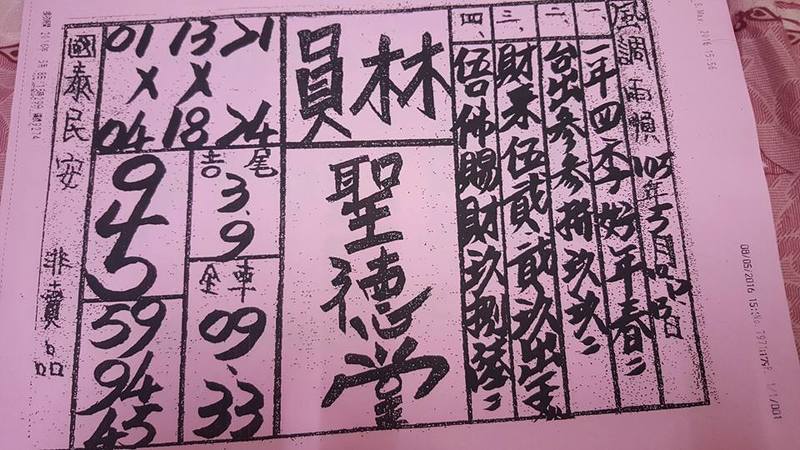 風調雨順
105年5月
一、一年四季好年春
二、台出參參捌玖玖
三、財來伍貳貳玖出
四、伍佛賜財玖捌陸
林員
聖德堂
01 13 21
X X
04 18 24
吉尾
3.9
全車
09.
33
9
4
5
59
94
45
國泰民安
非賣品
08/05/2016